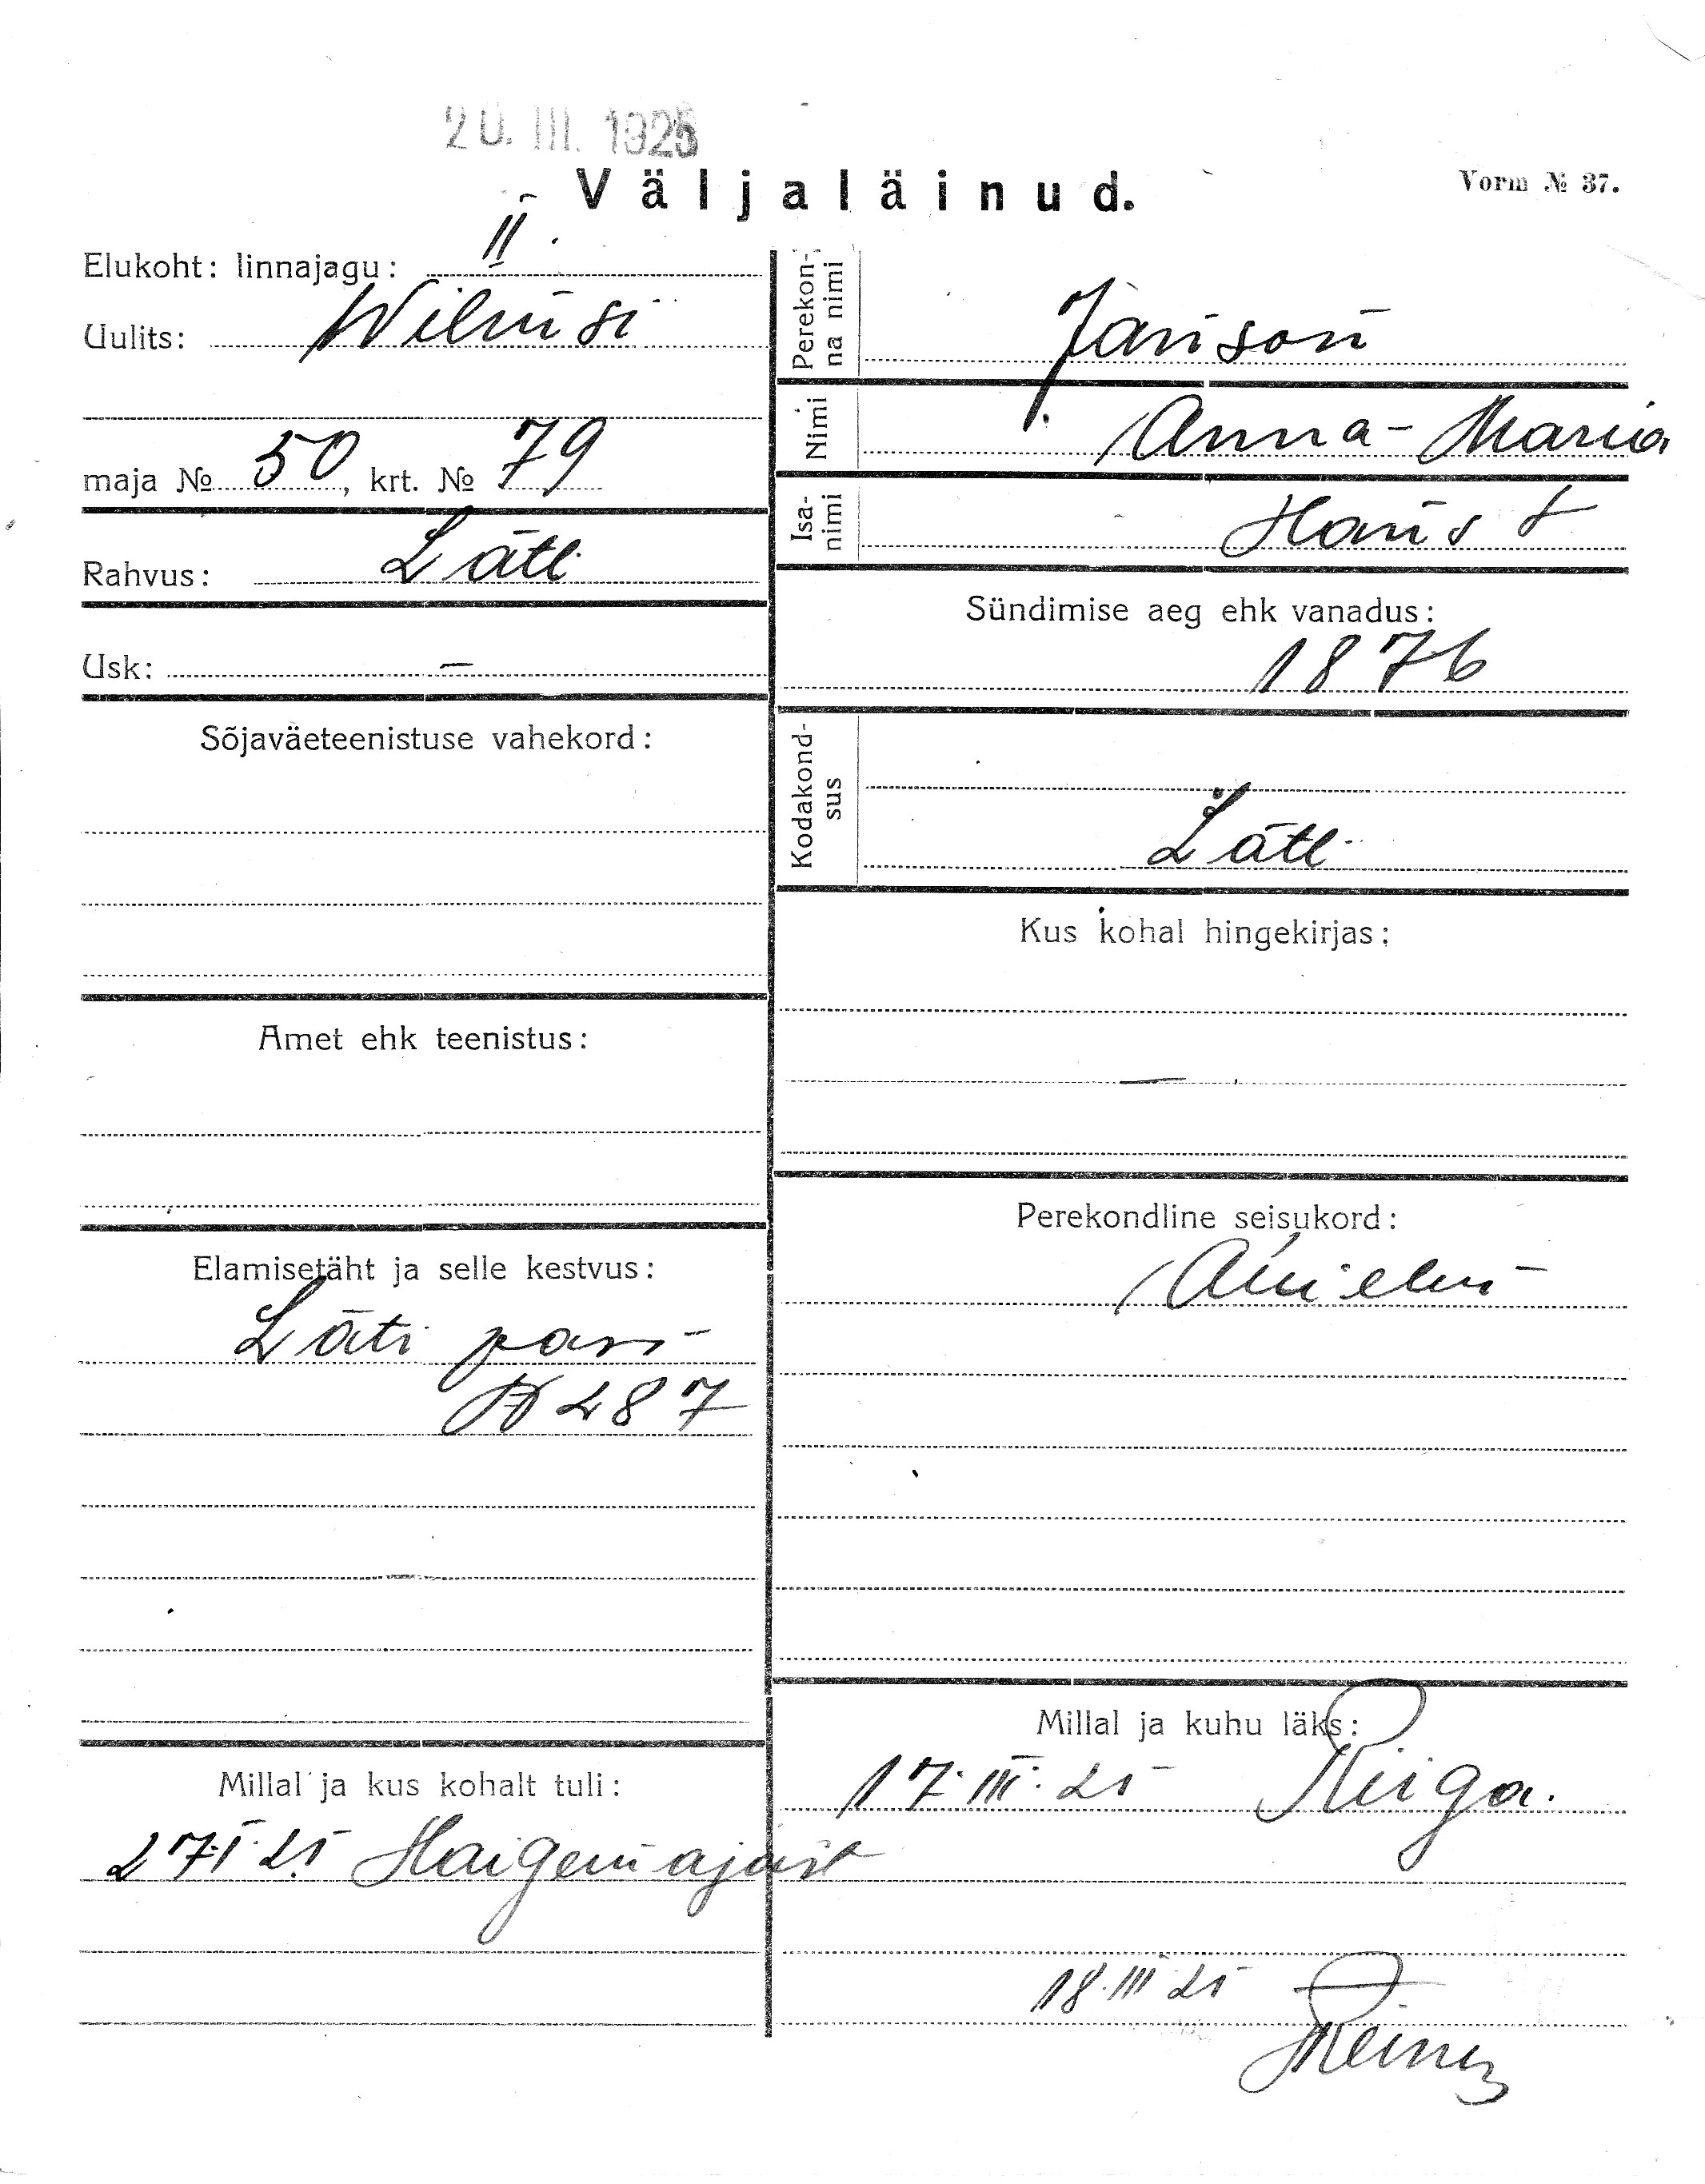 20. III. 1925
Väljaläinud.
Vorm № 37.
Elukoht: linnajagu: II
Uulits: Wilmsi
maja № 50, krt. № 79
Rahvus: Läti
Usk: —
Sõjaväeteenistuse vahekord:
Amet ehk teenistus:
Elamisetäht ja selle kestvus:
Läti pass
287
Millal ja kus kohalt tuli:
27.I.25 Haigemajast
Perekon-
na nimi
Janson
Nimi
Anna-Maria
Isa-
nimi
Hans t
Sündimise aeg ehk vanadus:
1876
Kodakond-
sus
Läti
Kus kohal hingekirjas:
—
Perekondline seisukord:
Millal ja kuhu läks:
17.III.25 Riiga.
18.III 25